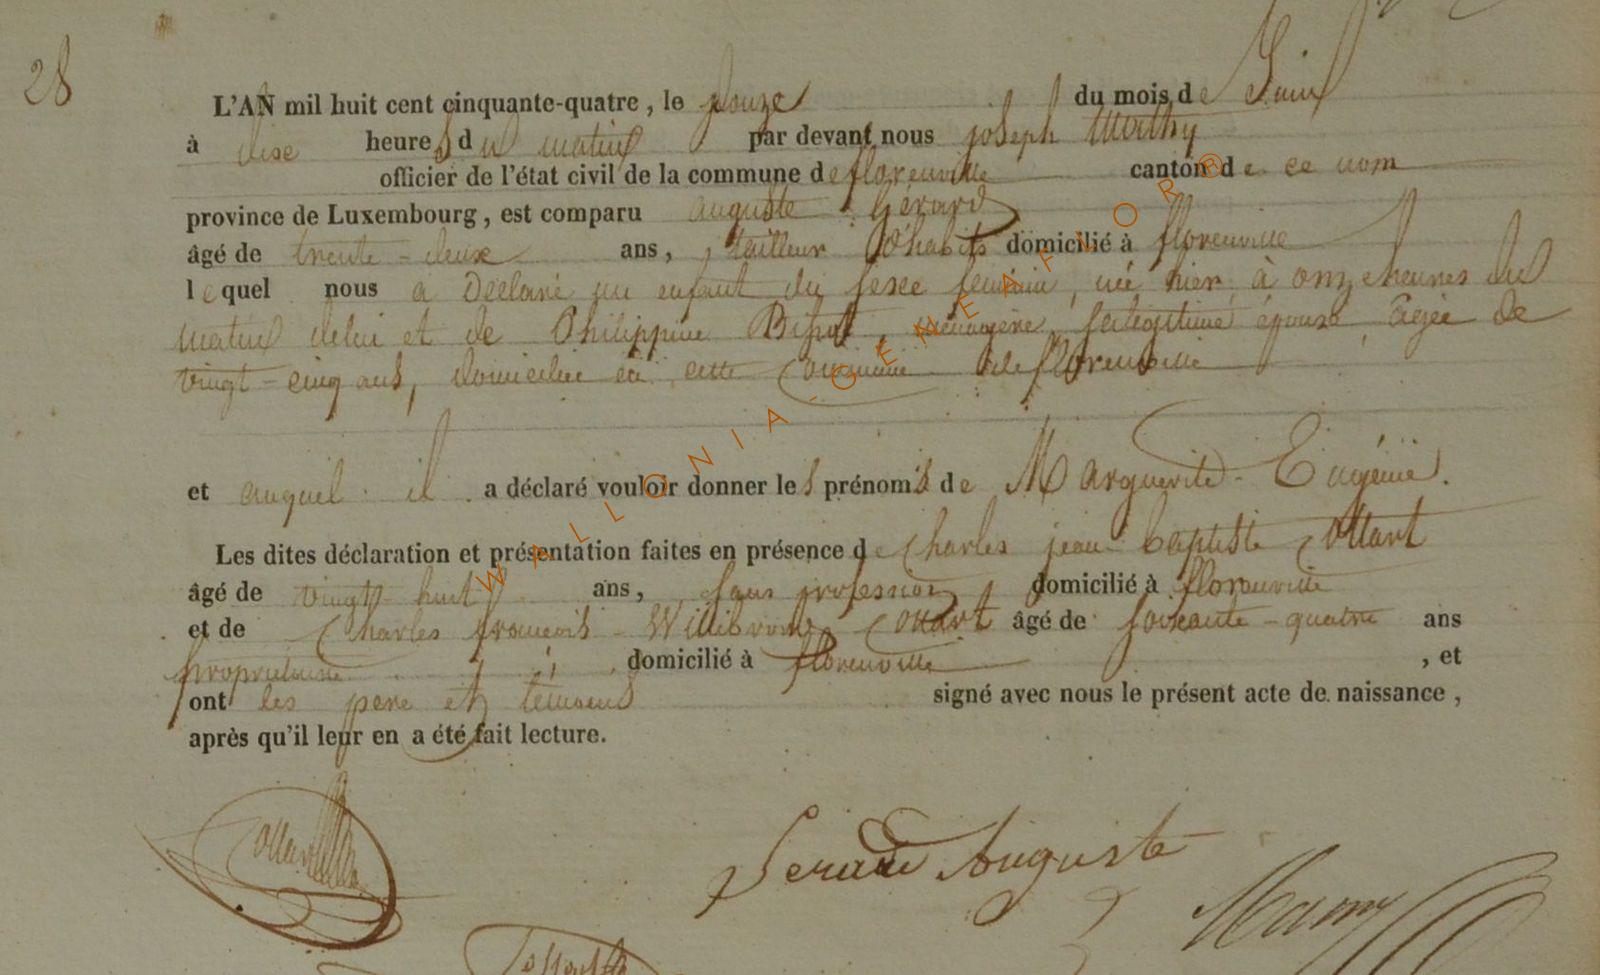 28
L'AN mil huit cent cinquante-quatre, le douze du mois de Juin
à dixe heures du matin par devant nous joseph
officier de l'état civil de la commune de florenville canton de ce nom
province de Luxembourg, est comparu auguste Gérard
âgé de trente-deux ans, tailleur d'habits domicilié à florenville
lequel nous a déclaré un enfant du sexe féminin, née hier à onze heures du
matin de lui et de Philippine, ménagère, sa légitime épouse âgée de
vingt-cinq ans, domiciliée en cette commune de florenville
et auquel il a déclaré vouloir donner les prénoms de Marguerite-Eugénie.
Les dites déclaration et présentation faites en présence de Charles jean-baptiste Collart
âgé de vingt huit ans, sans profession domicilié à florenville
et de Charles françois-Willibrord Collart âgé de soixante-quatre ans
propriétaire domicilié à florenville, et
ont les père et témoins signé avec nous le présent acte de naissance,
après qu'il leur en a été fait lecture.
Gerard Auguste
WALLONIA-GENEAFNOR®